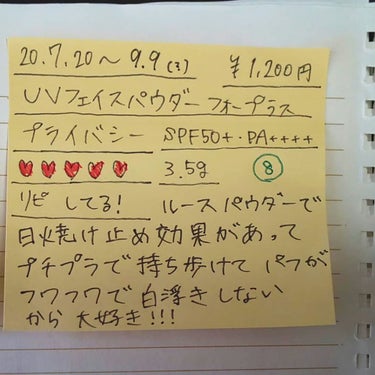 20.7.20〜9.9(3) ¥1,200円
UVフェイスパウダーフォープラス
プライバシー SPF50+・PA++++
3.5g ⑧
リピしてる! ルースパウダーで
日焼け止め効果があって
プチプラで持ち歩けてパフが
フワフワで白浮きしない
から大好き!!!